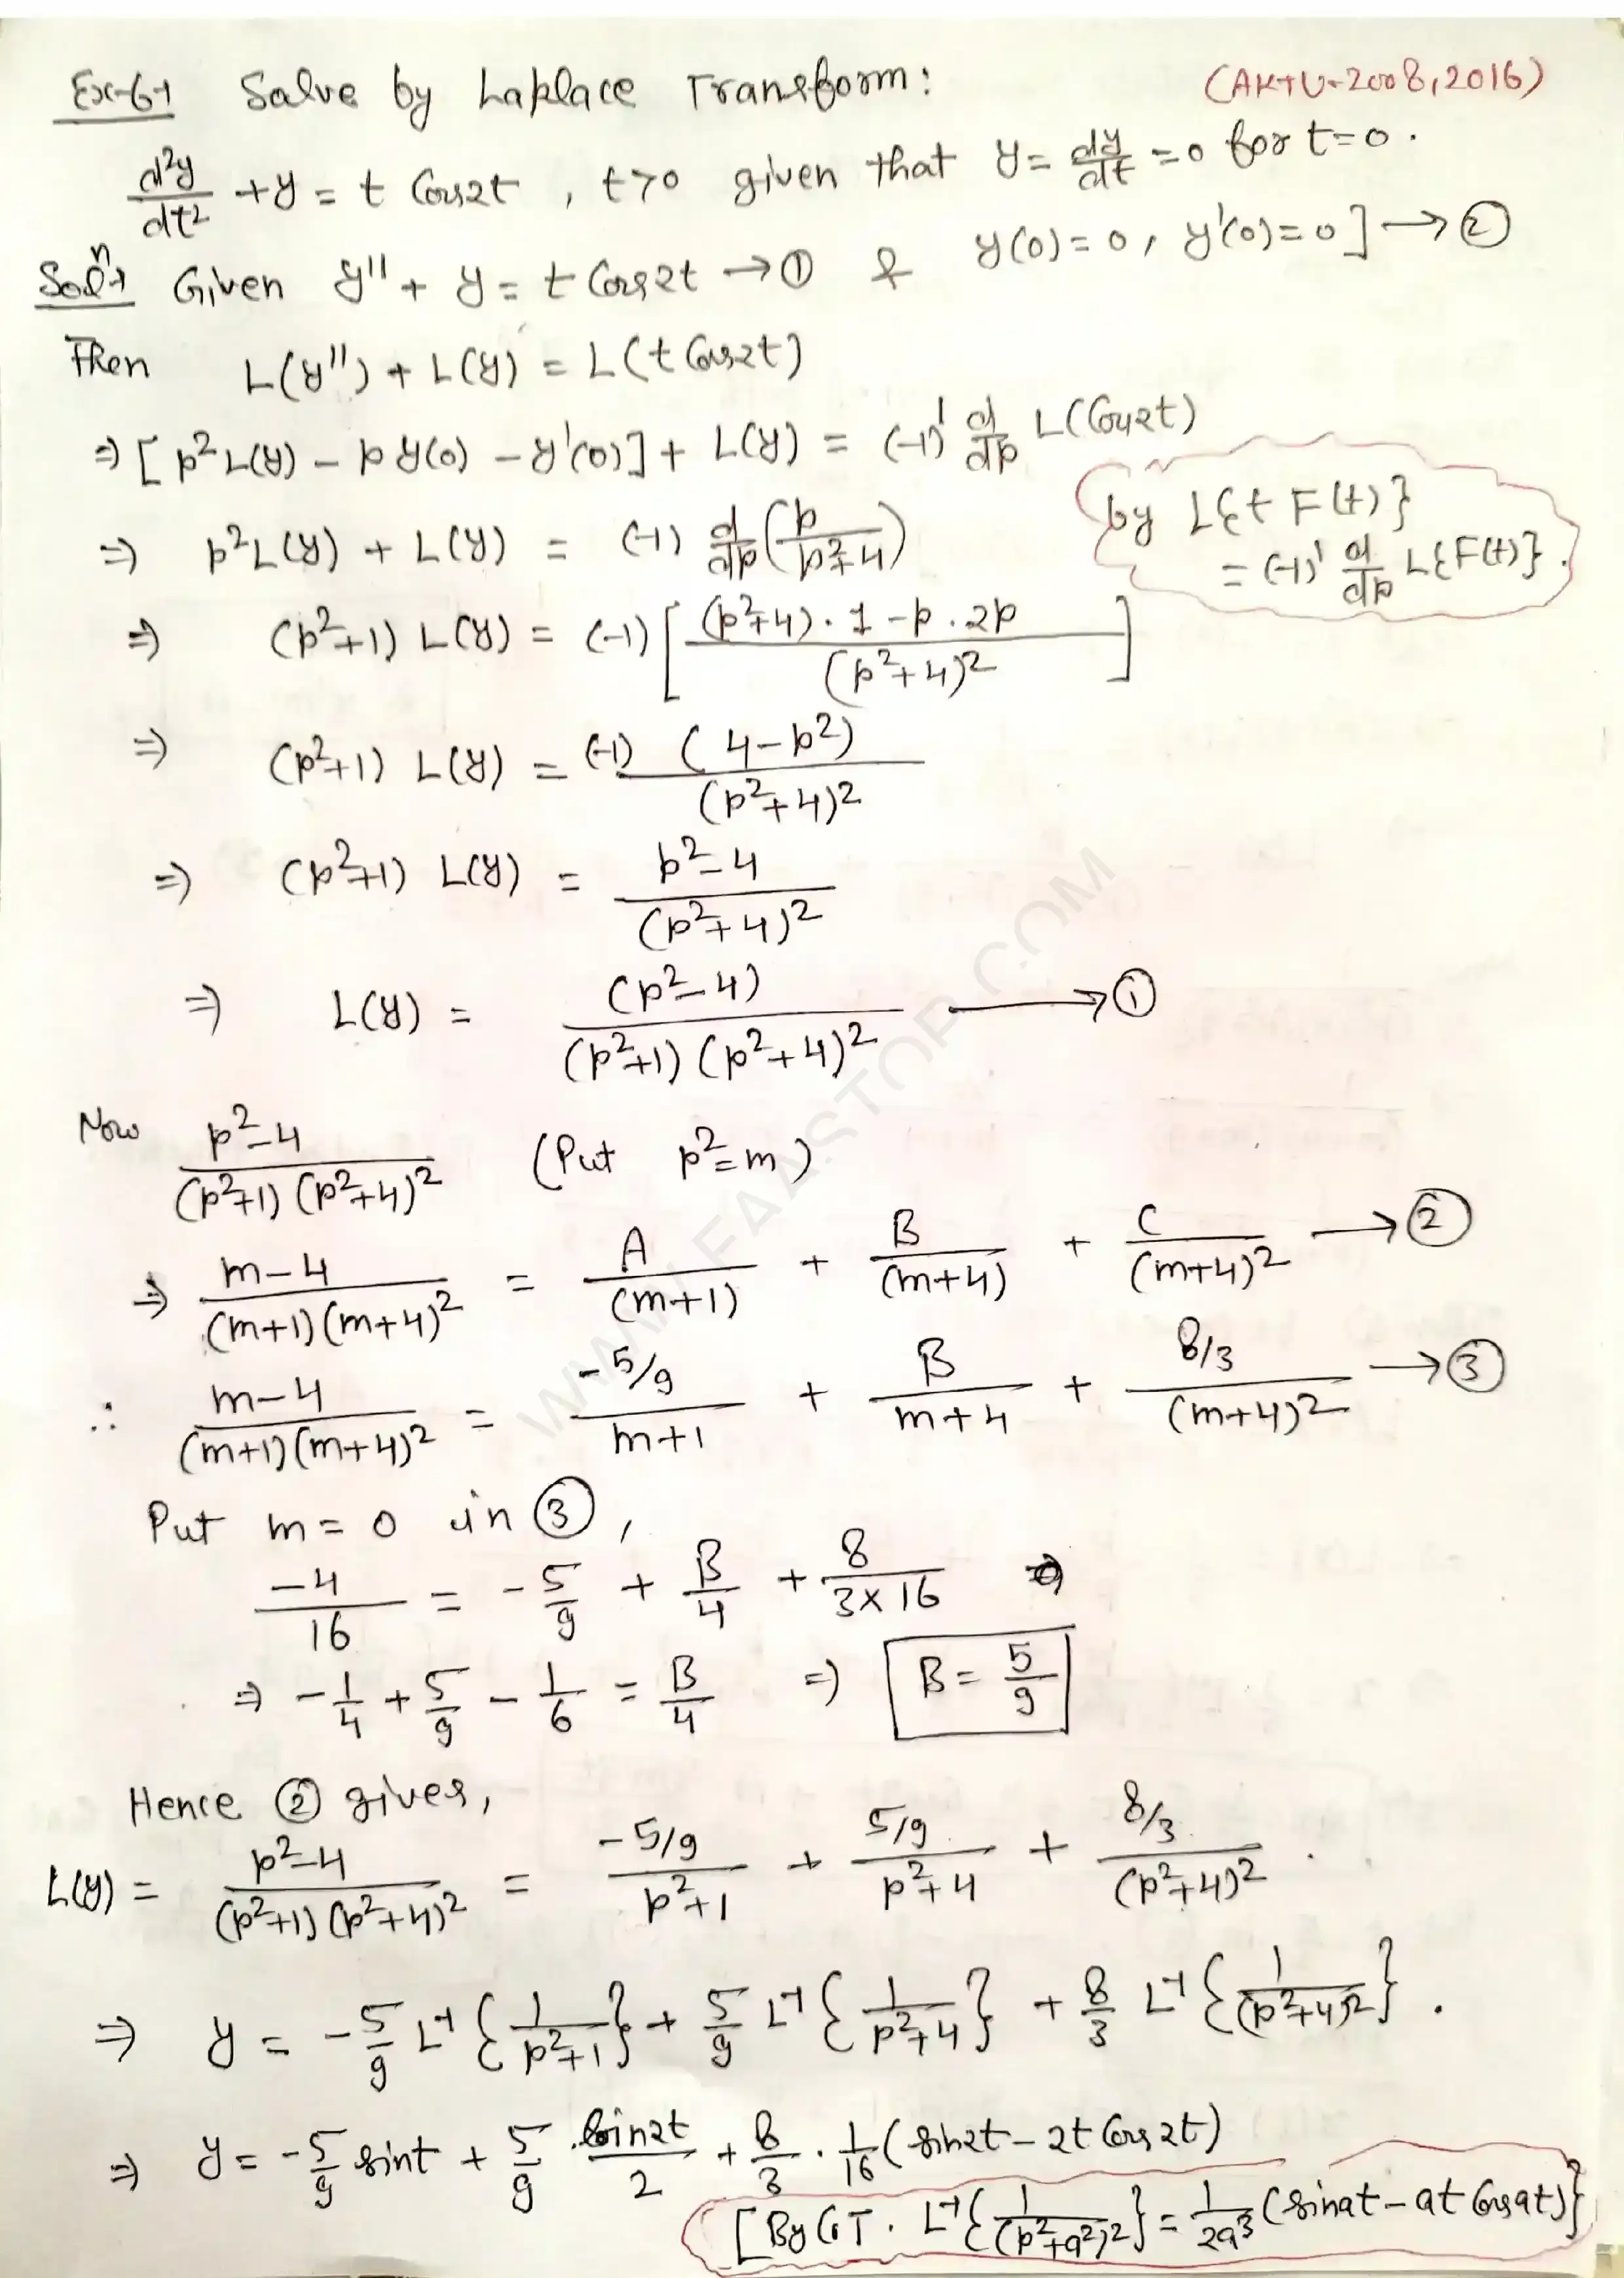 Ex-6→ Solve by Laplace Transform: (AKTU-2008,2016)
d²y/dt² + y = t Cos2t , t>0 given that y = dy/dt = 0 for t=0 .
Solⁿ→ Given y'' + y = t Cos2t → ① & y(0)=0, y'(0)=0] → ②
Then L(y'') + L(y) = L(t Cos2t)
⇒ [p²L(y) - p y(0) - y'(0)] + L(y) = (-1)¹ d/dp L(Cos2t)
by L{t F(t)}
= (-1)¹ d/dp L{F(t)}.
⇒ p²L(y) + L(y) = (-1) d/dp (p/(p²+4))
⇒ (p²+1) L(y) = (-1) [((p²+4)·1 - p·2p)/(p²+4)²]
⇒ (p²+1) L(y) = (-1) (4-p²)/(p²+4)²
⇒ (p²+1) L(y) = (p²-4)/(p²+4)²
⇒ L(y) = (p²-4)/((p²+1)(p²+4)²) → ①
Now (p²-4)/((p²+1)(p²+4)²) (Put p²=m)
⇒ (m-4)/((m+1)(m+4)²) = A/(m+1) + B/(m+4) + C/(m+4)² → ②
∴ (m-4)/((m+1)(m+4)²) = (-5/9)/(m+1) + B/(m+4) + (8/3)/(m+4)² → ③
Put m = 0 in ③,
-4/16 = -5/9 + B/4 + 8/(3×16) ⇒
⇒ -1/4 + 5/9 - 1/6 = B/4 ⇒ B = 5/9
Hence ② gives,
L(y) = (p²-4)/((p²+1)(p²+4)²) = (-5/9)/(p²+1) + (5/9)/(p²+4) + (8/3)/(p²+4)² .
⇒ y = -5/9 L⁻¹{1/(p²+1)} + 5/9 L⁻¹{1/(p²+4)} + 8/3 L⁻¹{1/(p²+4)²} .
⇒ y = -5/9 sint + 5/9 · sin2t/2 + 8/3 · 1/16 (sin2t - 2t Cos2t)
[By C.T. L⁻¹{1/(p²+a²)²} = 1/2a³ (sinat - at Cosat)}